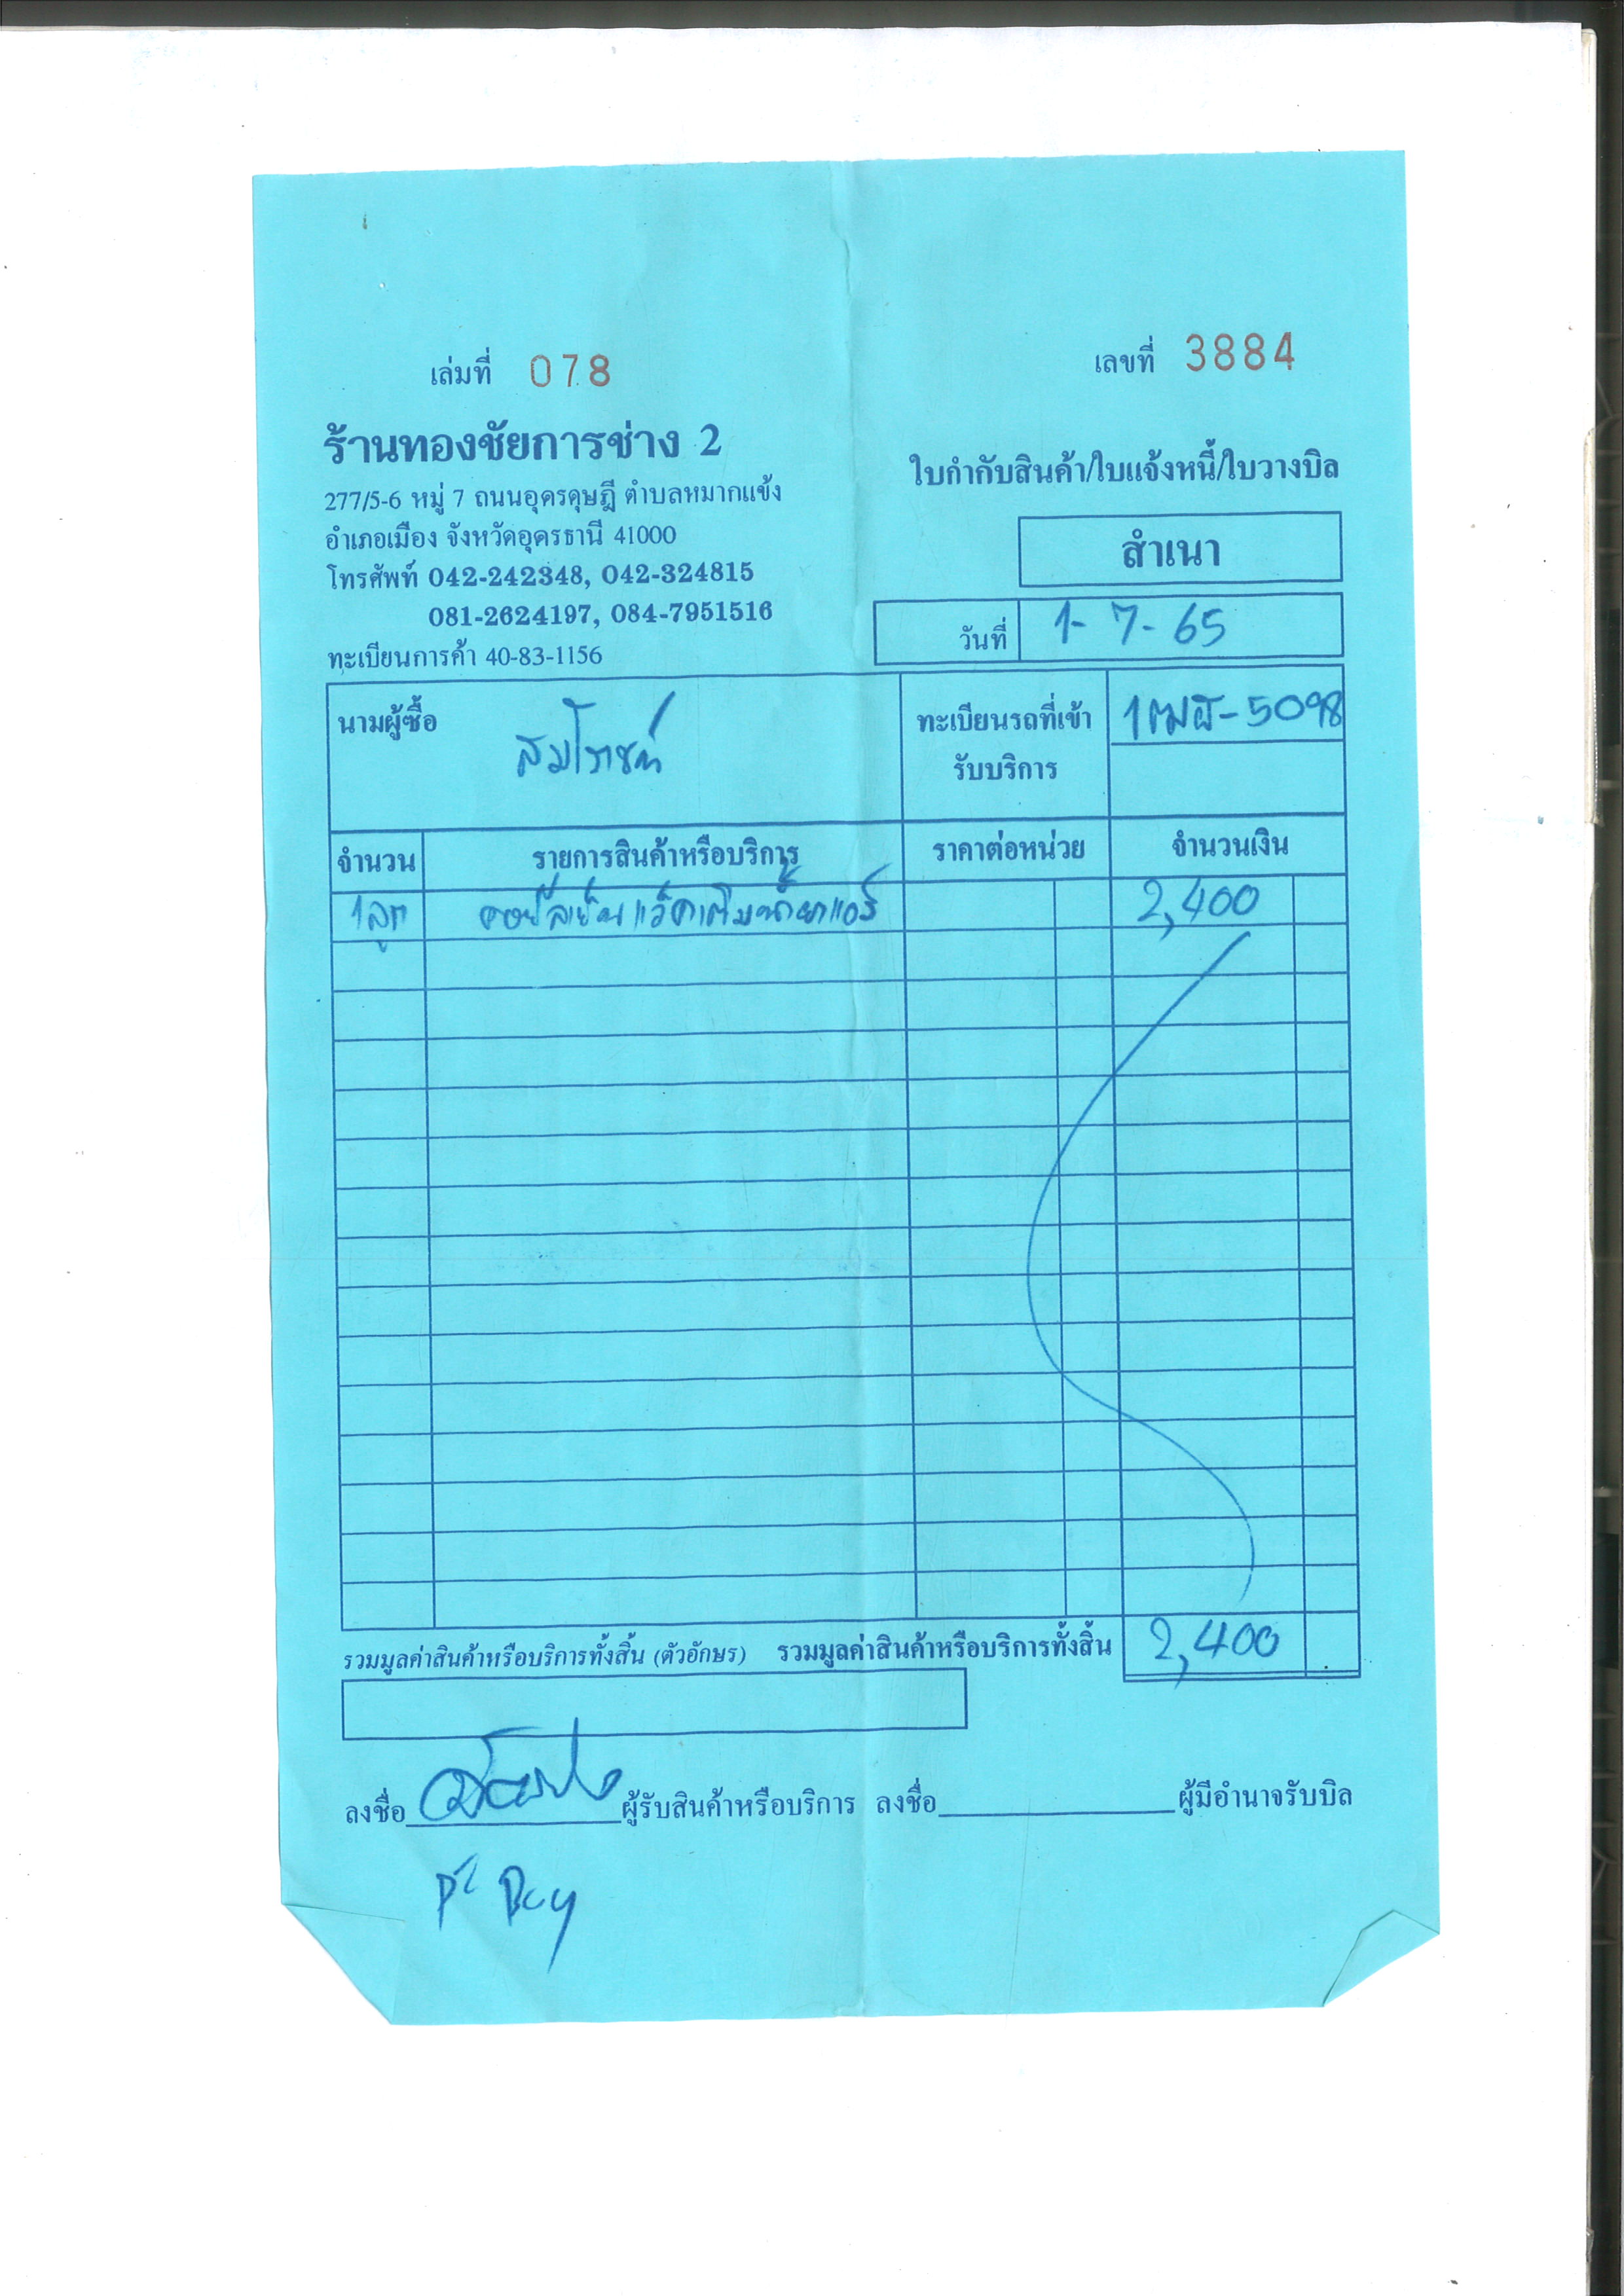 เล่มที่ 078
เลขที่ 3884
ร้านทองชัยการช่าง 2
277/5-6 หมู่ 7 ถนนอุดรดุษฎี ตำบลหมากแข้ง
อำเภอเมือง จังหวัดอุดรธานี 41000
โทรศัพท์ 042-242348, 042-324815
081-2624197, 084-7951516
ทะเบียนการค้า 40-83-1156
ใบกำกับสินค้า/ใบแจ้งหนี้/ใบวางบิล
สำเนา
วันที่ 1-7-65
นามผู้ซื้อ สมโภชน์
ทะเบียนรถที่เข้า
รับบริการ
5098
จำนวน รายการสินค้าหรือบริการ ราคาต่อหน่วย จำนวนเงิน
1ลูก คอย์ลเย็นแว็คเติมน้ำยาแอร์ 2,400
รวมมูลค่าสินค้าหรือบริการทั้งสิ้น (ตัวอักษร) รวมมูลค่าสินค้าหรือบริการทั้งสิ้น 2,400
ลงชื่อ ผู้รับสินค้าหรือบริการ ลงชื่อ ผู้มีอำนาจรับบิล